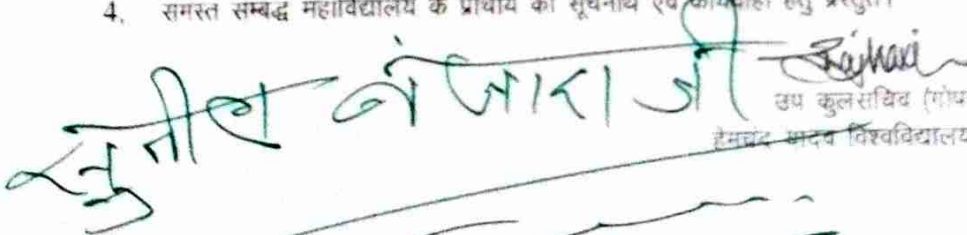 4. समस्त सम्बद्ध महाविद्यालय के प्राचार्य को सूचनार्थ एवं कार्यवाही हेतु प्रस्तुत।
सुनील बंजारा जी
उप कुलसचिव (गोप
हेमचंद यादव विश्वविद्यालय